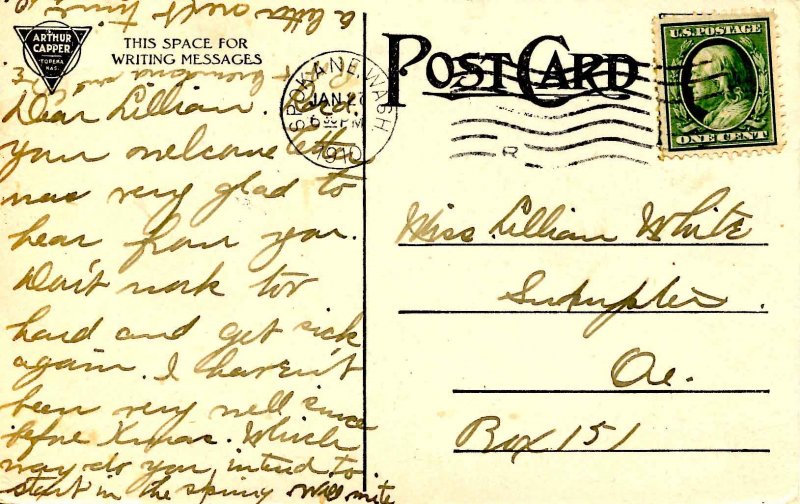 ARTHUR
CAPPER
TOPEKA
KAS.
THIS SPACE FOR
WRITING MESSAGES
POST CARD
U.S. POSTAGE
ONE CENT
SPOKANE, WASH.
JAN 2
6 30 PM
1910
R
Dear Lillian. Rec.
your welcome letter
was very glad to
hear from you.
Don't work too
hard and get sick
again. I haven't
been very well since
before Xmas. Which
way do you intend to
start in the spring will write
a letter next time
Miss. Lillian White
Ore.
Box 151